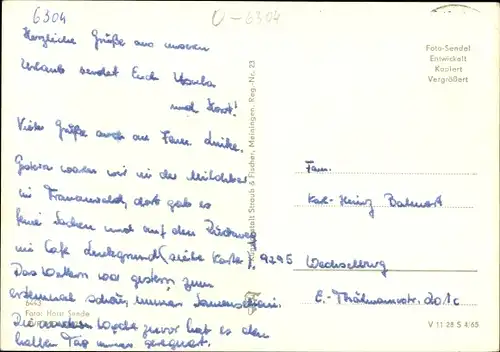 6304
U-6304
Herzliche Grüße aus unserem
Urlaub sendet Euch
und Horst!
Viele Grüße auch an Fam.
Gestern waren wir in der Milchbar
in Frauenwald, dort gab es
feine Sachen und auf dem Rückweg
im Café Lenkgrund (siehe Karte).
Das Wetter war gestern zum
erstenmal schön, immer Sonnenschein.
Die Woche zuvor hat es den
halben Tag immer geregnet.
Foto: Horst Sende
Kunstanstalt Straub & Fischer, Meiningen, Reg.-Nr. 23
Foto-Sendel
Entwickelt
Kopiert
Vergrößert
Fam.
Karl-Heinz
9295 Wechselburg
E.-Thälmannstr. 201c
V 11 28 S 4/65